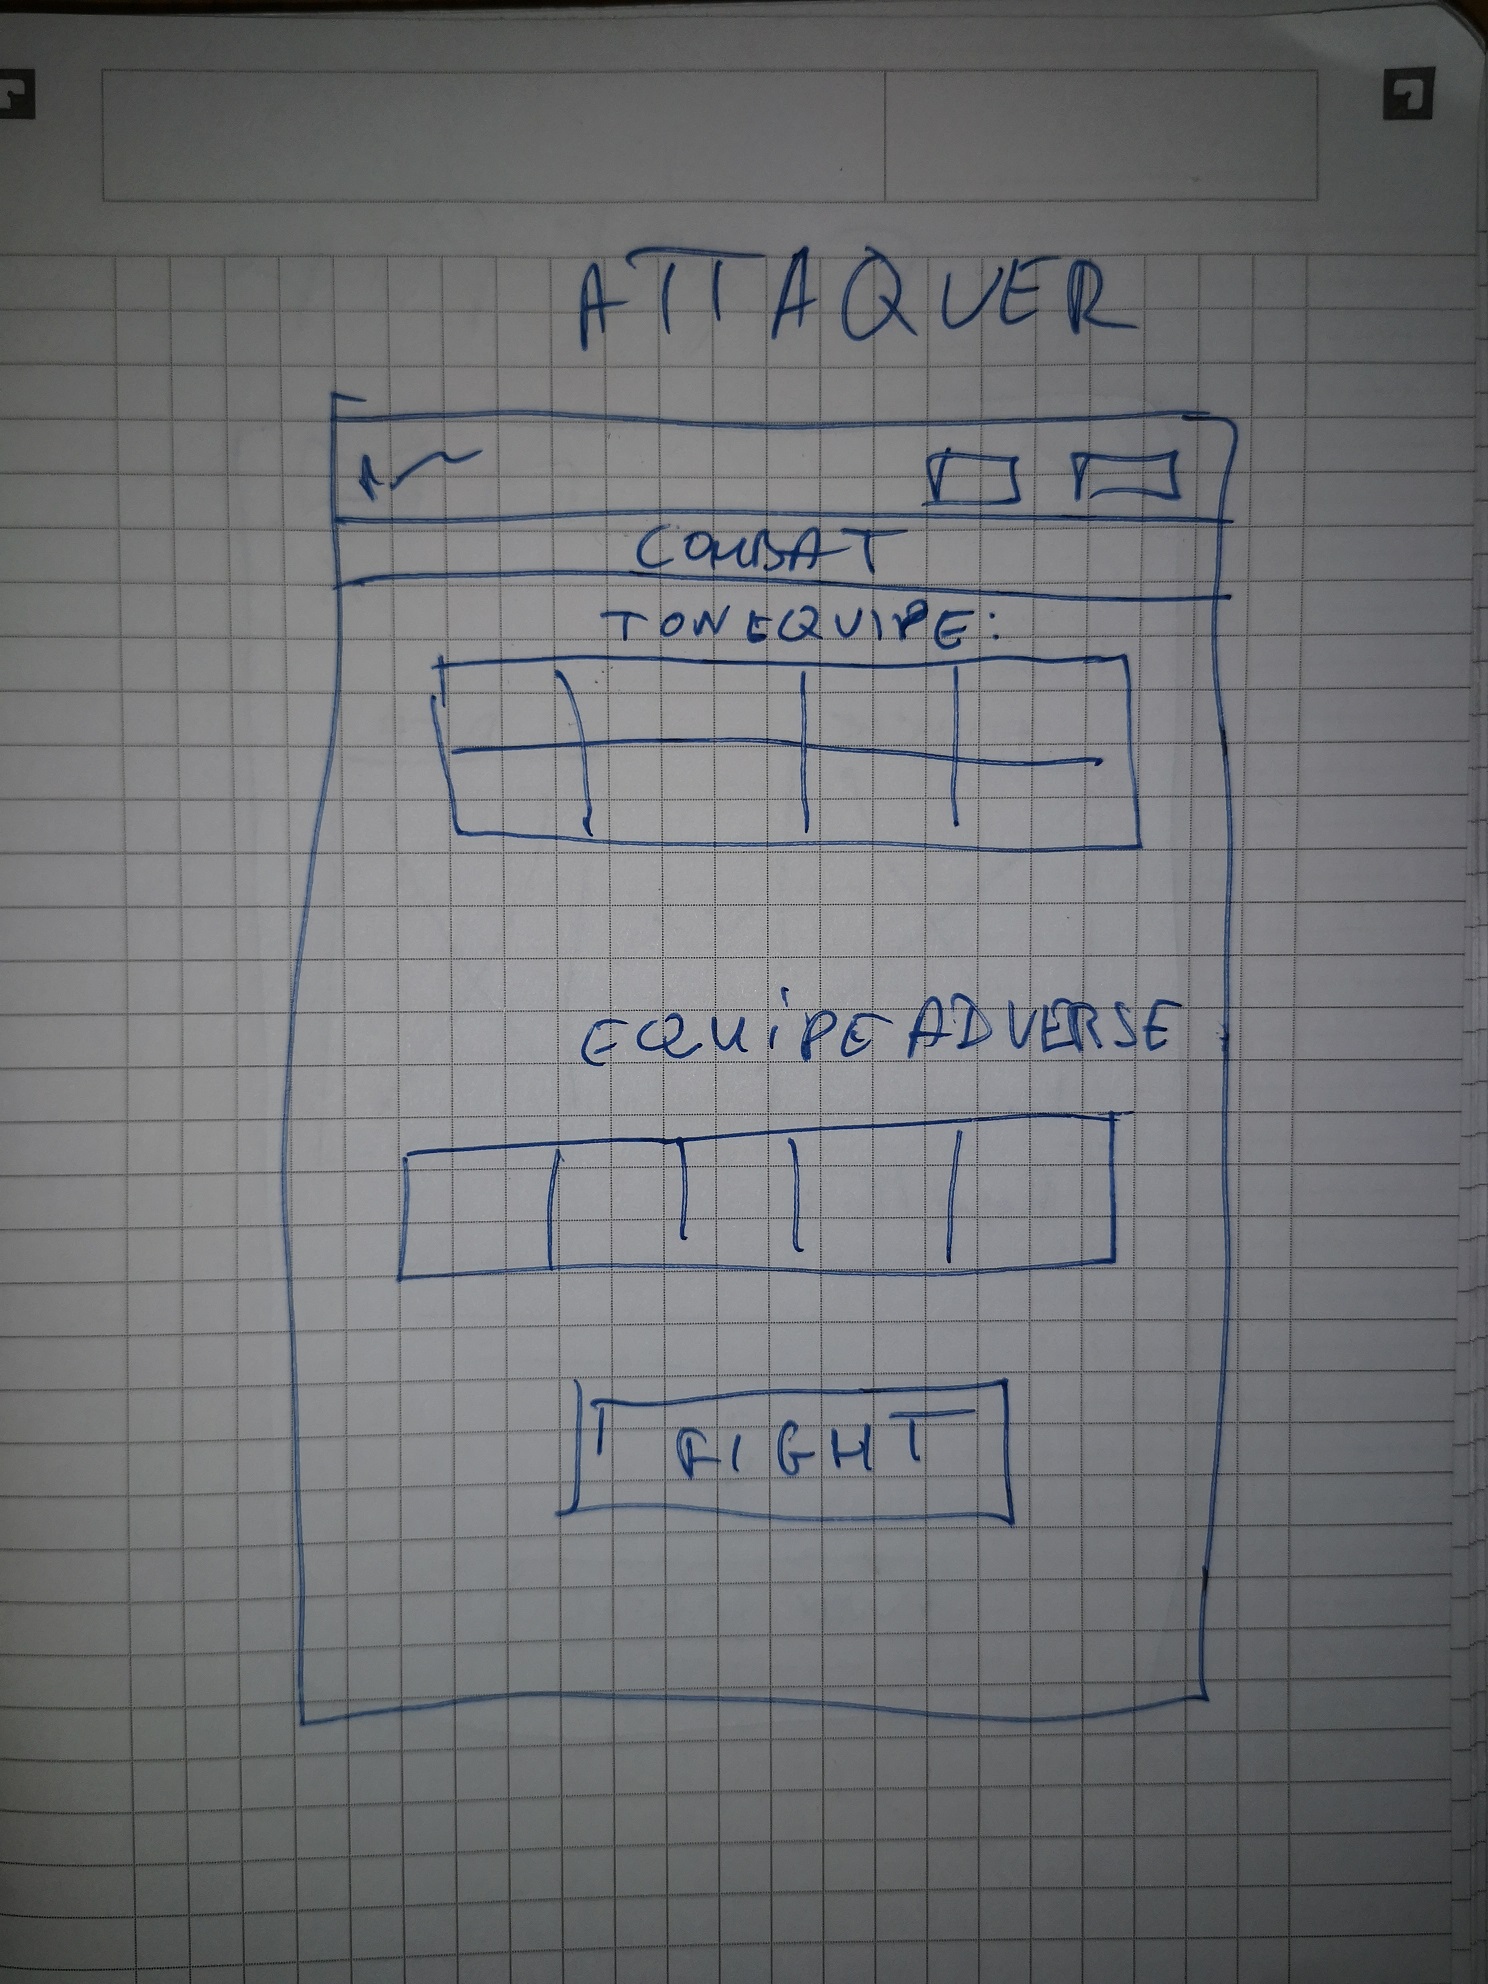 ATTAQUER
COMBAT
TON EQUIPE:
EQUIPE ADVERSE
FIGHT